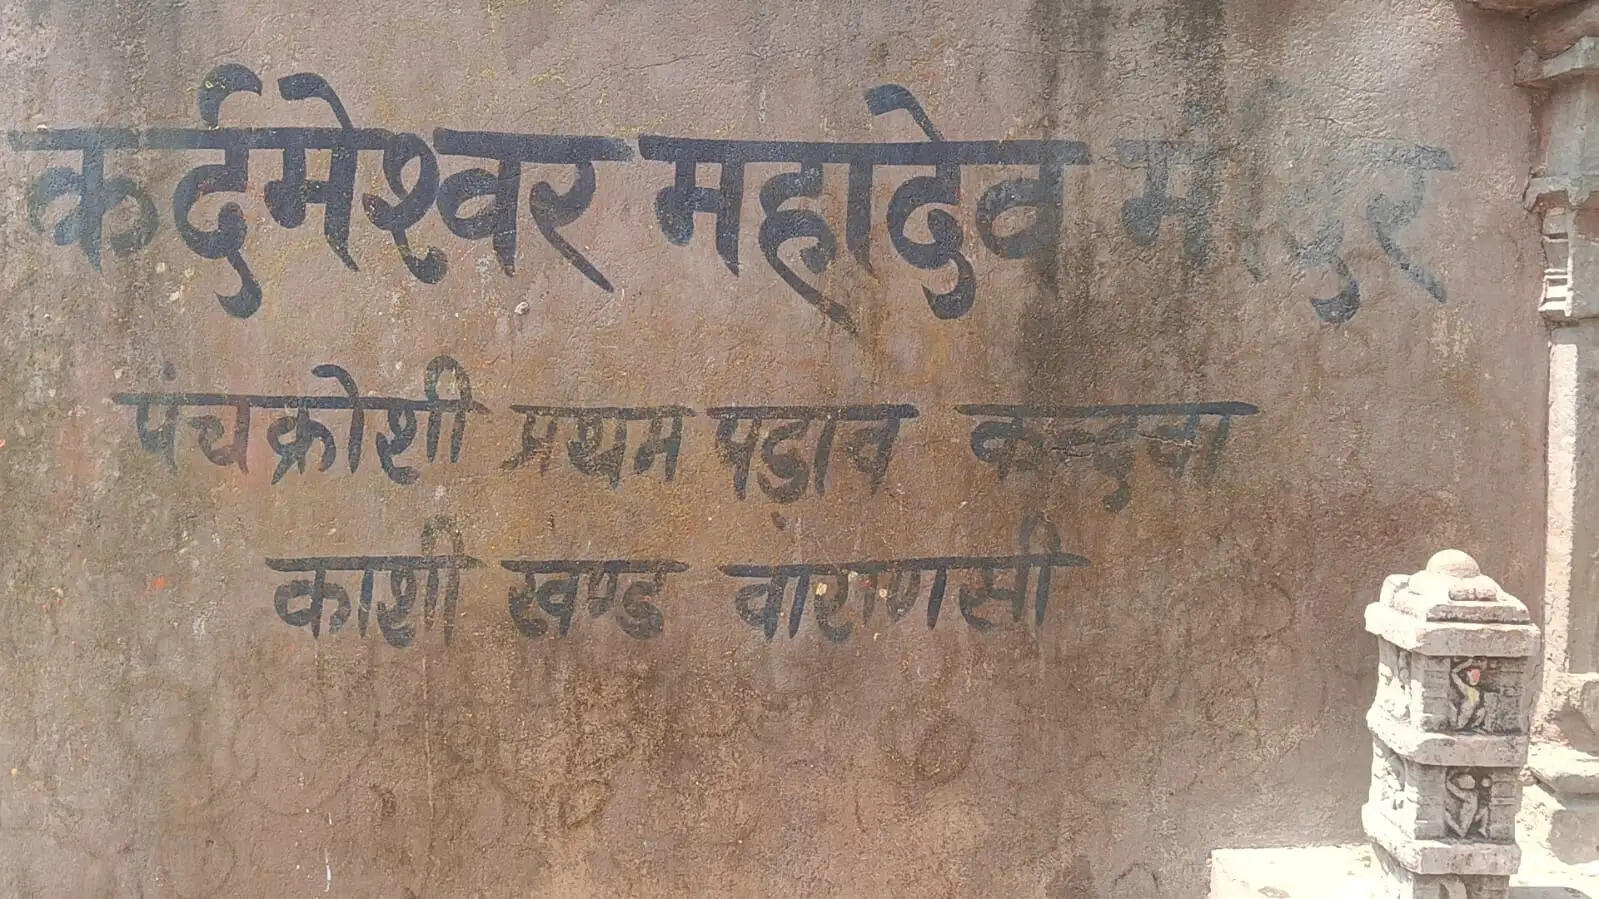 कर्दमेश्वर महादेव मंदिर
पंचक्रोशी प्रथम पड़ाव कन्दवा
काशी खण्ड वाराणसी